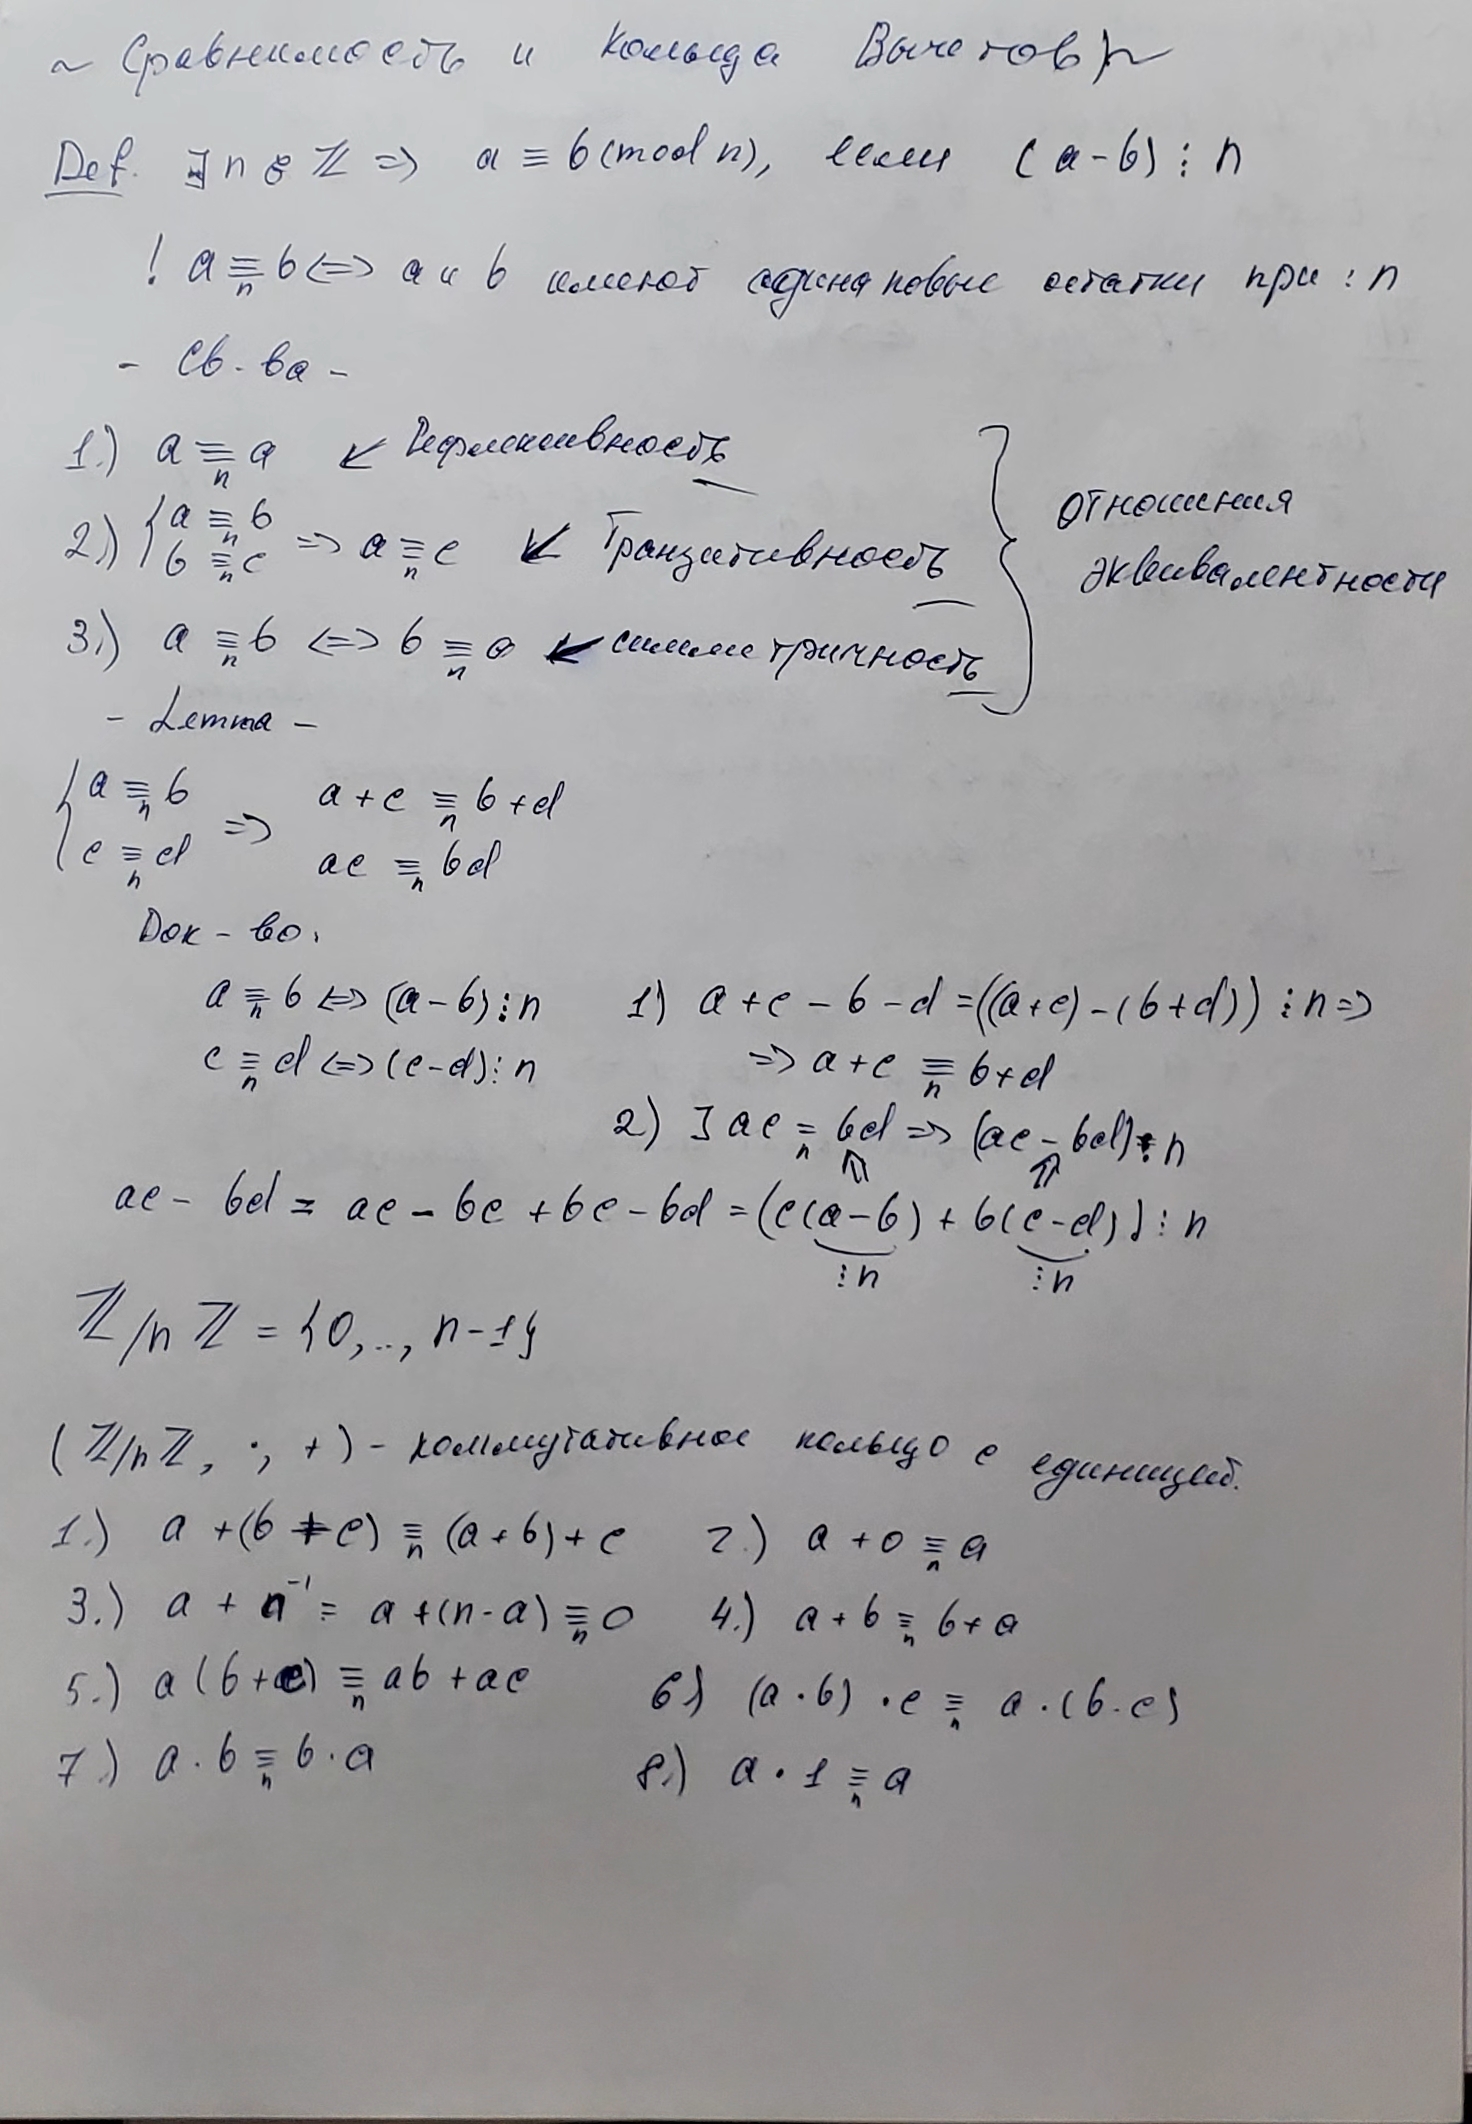 ~ Сравнимость и кольца Вычетов ~
Def. ∃ n ∈ ℤ => a ≡ b (mod n), если (a - b) ⋮ n
! a ≡ₙ b <=> a и b имеют одинаковые остатки при : n
- Св-ва -
1.) a ≡ₙ a ↙ Рефлексивность
2.) { a ≡ₙ b
b ≡ₙ c => a ≡ₙ c ↙ Транзитивность
3.) a ≡ₙ b <=> b ≡ₙ a ↙ симметричность
} отношения
эквивалентности
- Lemma -
{ a ≡ₙ b
c ≡ₙ d => a + c ≡ₙ b + d
ac ≡ₙ bd
Док-во.
a ≡ₙ b <=> (a - b) ⋮ n
c ≡ₙ d <=> (c - d) ⋮ n
1) a + c - b - d = ((a + c) - (b + d)) ⋮ n =>
=> a + c ≡ₙ b + d
2) ∃ ac =ₙ bd => (ac - bd) ⋮ n
⇑ ⇑
ac - bd = ac - bc + bc - bd = (c(a - b) + b(c - d)) ⋮ n
⋮ n ⋮ n
ℤ/nℤ = {0, .., n - 1}
(ℤ/nℤ, ·, +) - коммутативное кольцо с единицей.
1.) a + (b + c) ≡ₙ (a + b) + c 2.) a + 0 ≡ₙ a
3.) a + a⁻¹ = a + (n - a) ≡ₙ 0 4.) a + b ≡ₙ b + a
5.) a (b + c) ≡ₙ ab + ac 6) (a · b) · c ≡ₙ a · (b · c)
7.) a · b ≡ₙ b · a 8.) a · 1 ≡ₙ a